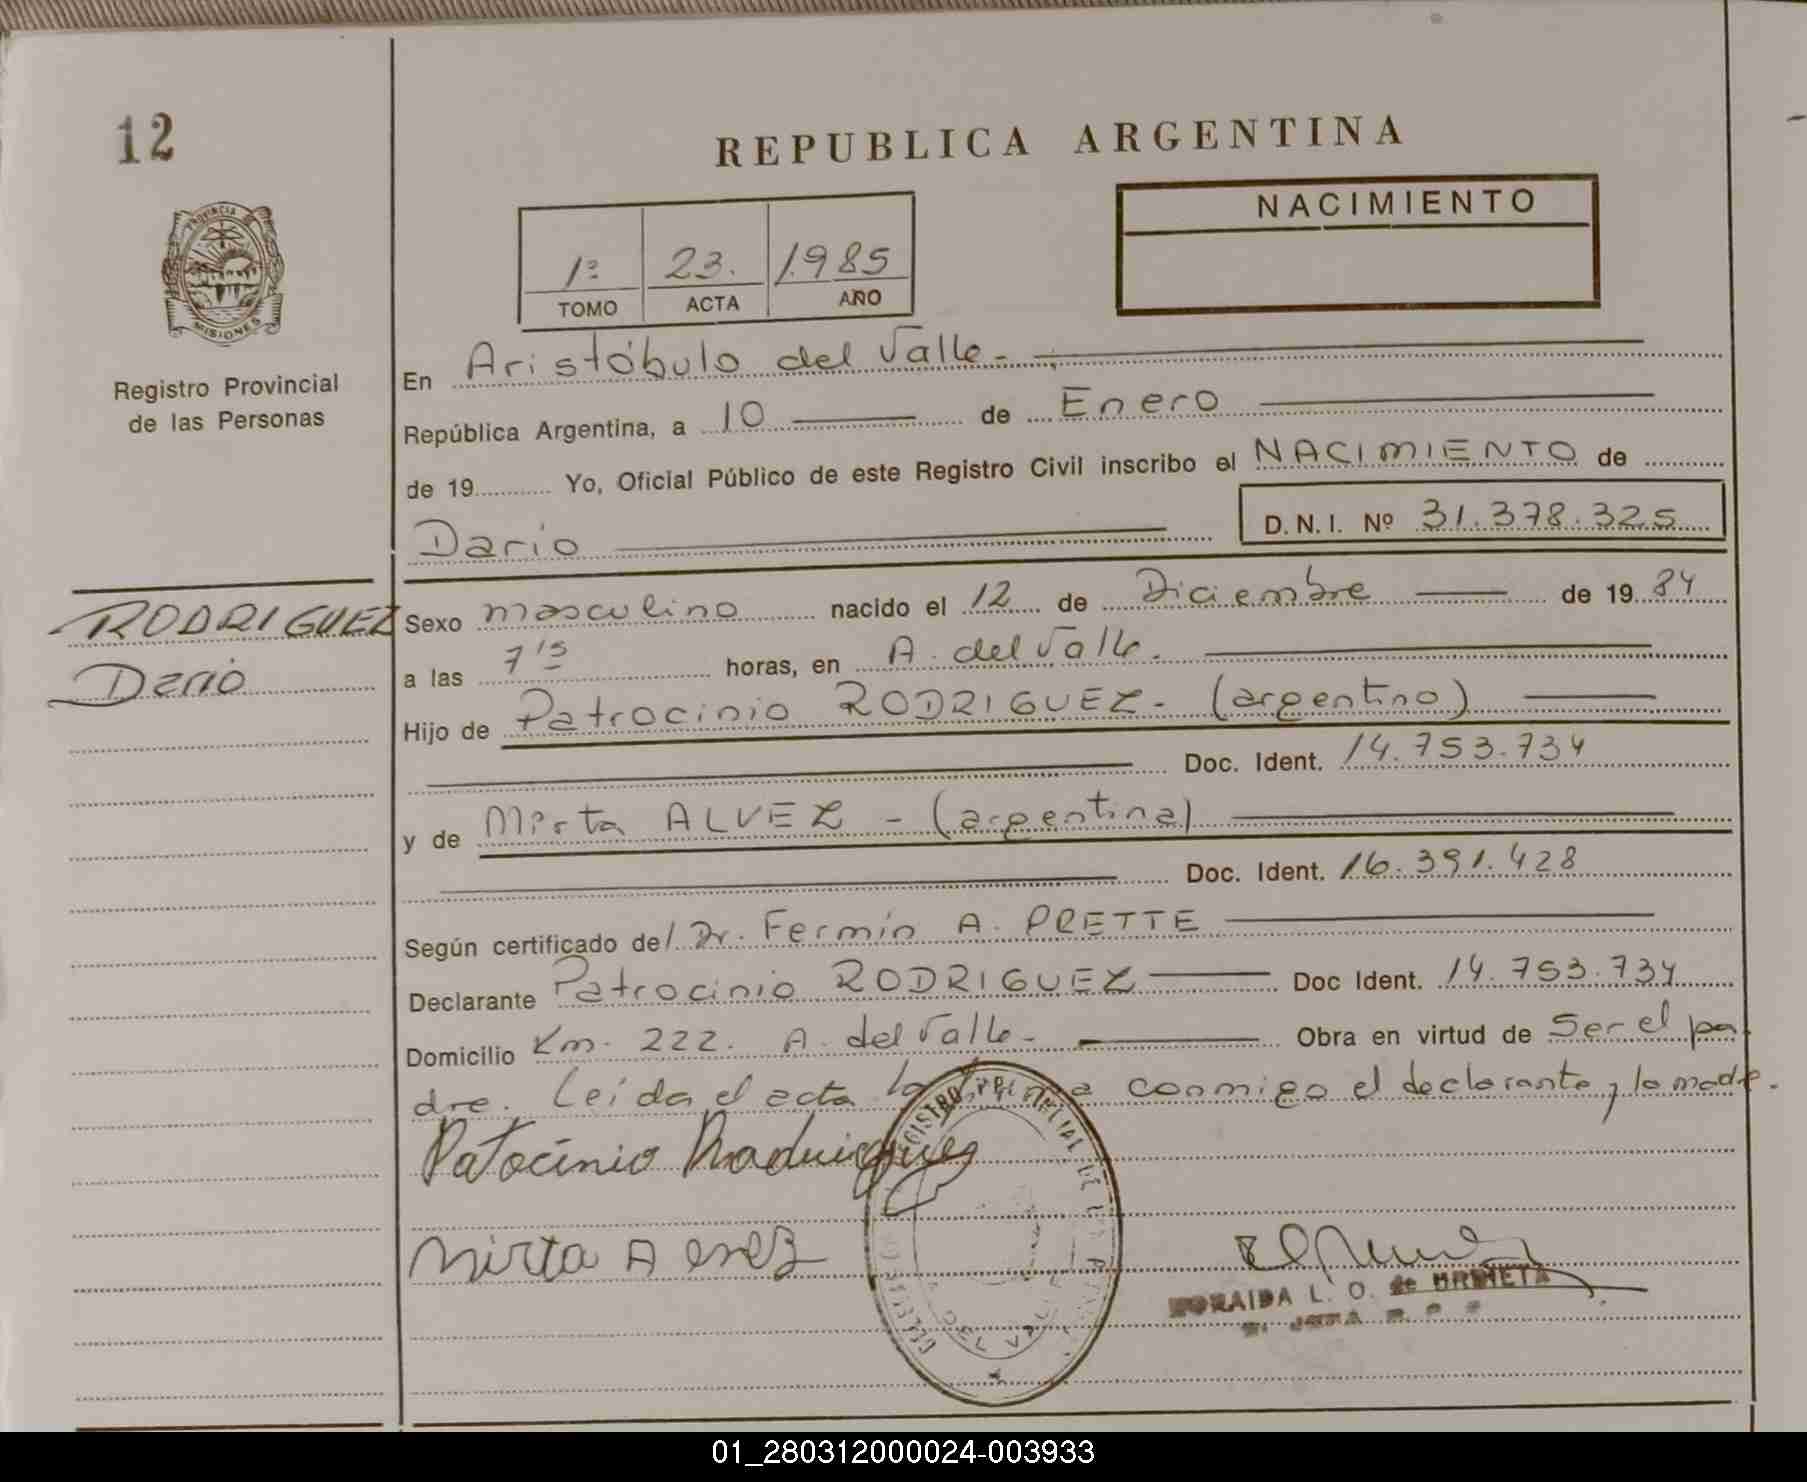 12
REPUBLICA ARGENTINA
PROVINCIA DE
MISIONES
Registro Provincial
de las Personas
1º 23. 1985
TOMO ACTA AÑO
NACIMIENTO
En Aristóbulo del Valle.-
República Argentina, a 10 de Enero
de 19 Yo, Oficial Público de este Registro Civil inscribo el NACIMIENTO de
Dario D.N.I. Nº 31.378.325
RODRIGUEZ
Dario
Sexo masculino nacido el 12 de Diciembre de 19 84
a las 7 15 horas, en A. del Valle.
Hijo de Patrocinio RODRIGUEZ - (argentino)
Doc. Ident. 14.753.734
y de Mirta ALVEZ - (argentina)
Doc. Ident. 16.391.428
Según certificado del Dr. Fermín A. PRETTE
Declarante Patrocinio RODRIGUEZ Doc Ident. 14.753.734
Domicilio Km. 222. A. del Valle. Obra en virtud de Ser el pa
dre. Leída el acta la conmigo el declarante y la madre.
Patocinio
Mirta
REGISTRO PROVINCIAL DE
DEL VALLE
L. O. de
01_280312000024-003933